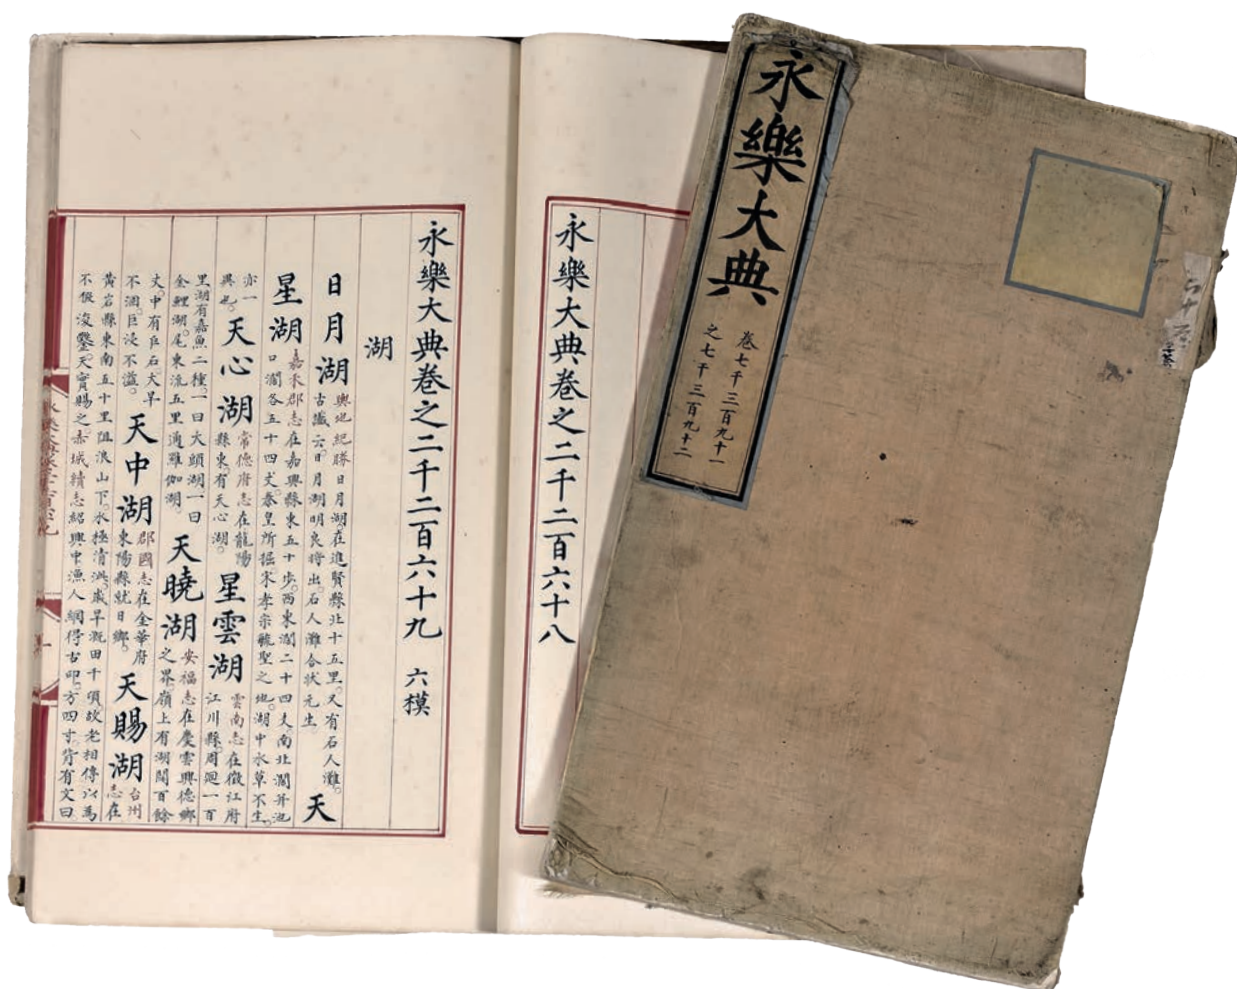 永樂大典
卷七千三百九十一
之七千三百九十二
永樂大典卷之二千二百六十八
永樂大典卷之二千二百六十九 六模
湖
日月湖
輿地紀勝日月湖。在進賢縣北十五里。又有石人灘。
古讖云。日月湖明良將出。石人灘合狀元生。
天
星湖
嘉禾郡志在嘉興縣東五十步。西東濶二十四丈。南北濶并池
口濶各五十四丈。秦皇所掘。宋孝宗毓聖之地。湖中水草不生。
亦一
異也。
天心湖
常德府志在龍陽
縣東。有天心湖。
星雲湖
雲南志在徵江府
江川縣。周廻一百
里。湖有嘉魚二種。一曰大頭湖一曰
金鯉湖。尾東流五里通雞伽湖。
天曉湖
安福志在慶雲興德鄉
之界。嶺上有湖闊百餘
丈。中有巨石。大旱
不涸。巨浸不溢。
天中湖
郡國志在金華府
東陽縣就日鄉。
天賜湖
台州
志在
黃岩縣東南五十里阻浪山下。水極清洌。歲旱溉田千頃。故老相傳以為
不假浚鑿。天實賜之。赤城續志紹興中漁人網得古印。方四寸。背有文曰